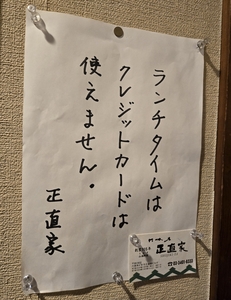 ランチタイムは
クレジットカードは
使えません.
正直家
正直家